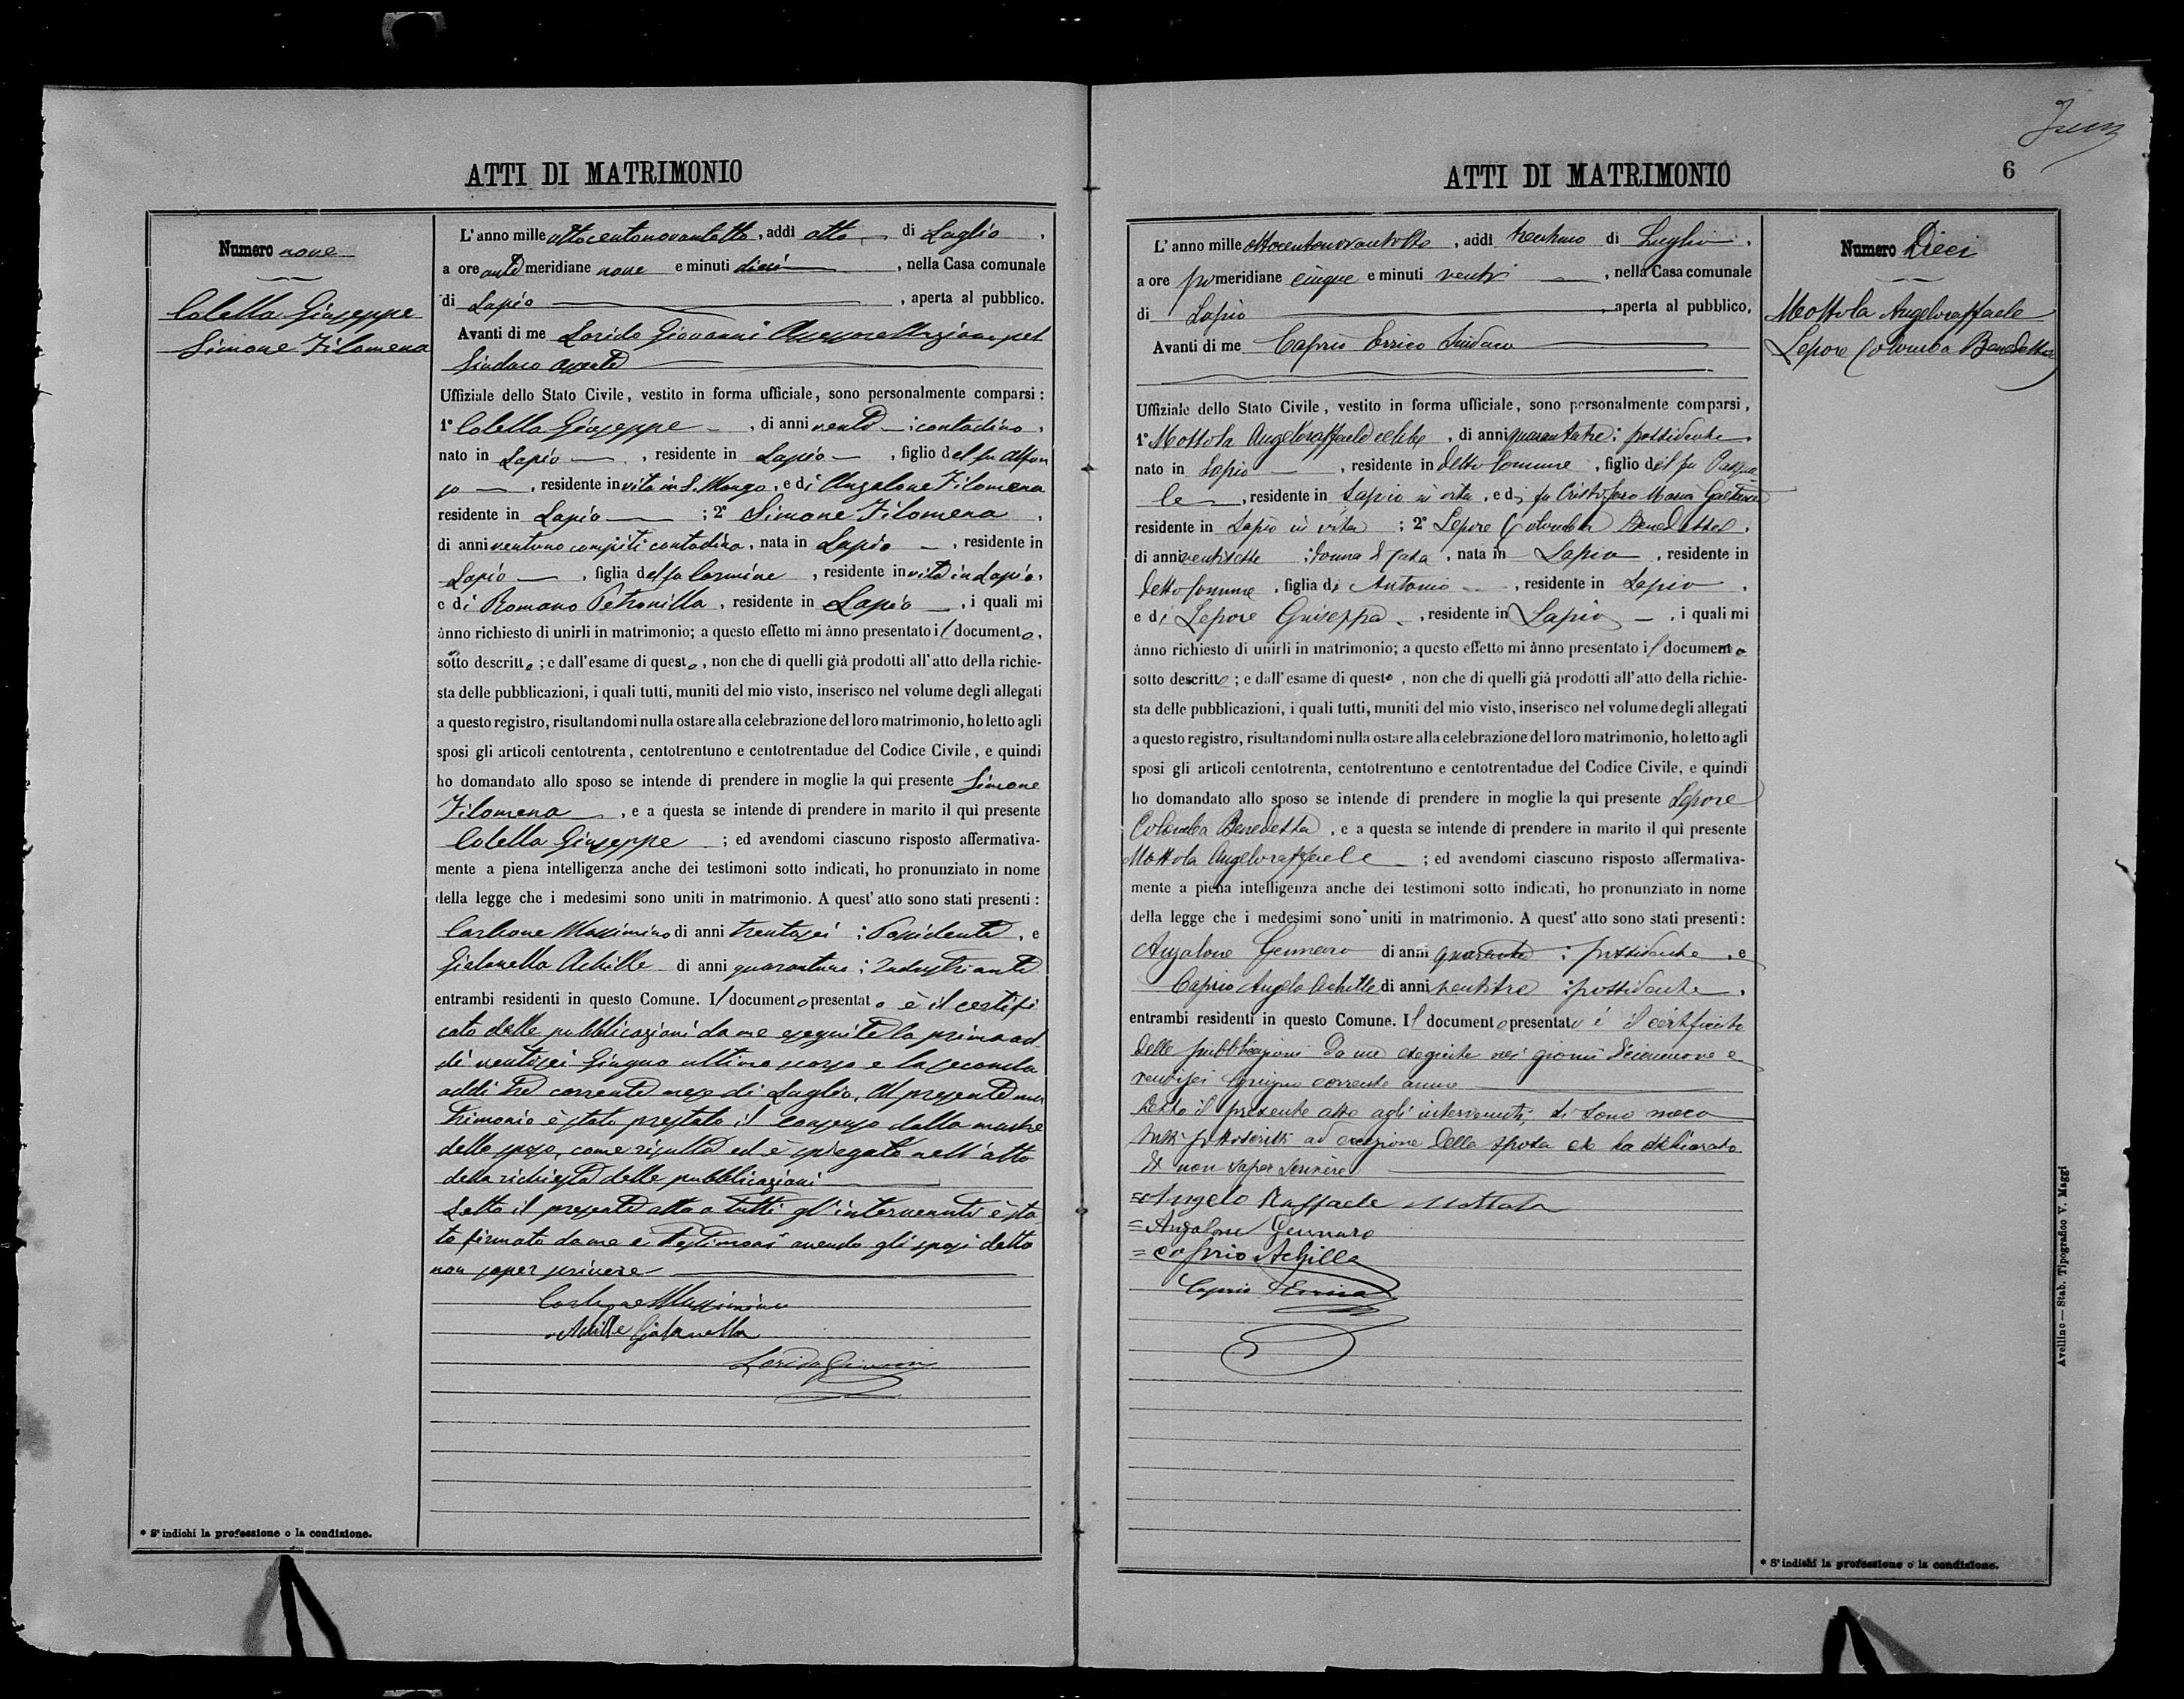 ATTI DI MATRIMONIO
Numero nove
Colella Giuseppe
Simone Filomena
L'anno mille ottocentonovantotto, addì otto di Luglio,
a ore anti meridiane nove e minuti dieci, nella Casa comunale
di Lapio, aperta al pubblico.
Avanti di me Lorido Giovanni Assessore Anziano pel
Sindaco assente
Uffiziale dello Stato Civile, vestito in forma ufficiale, sono personalmente comparsi:
1° Colella Giuseppe, di anni venti; contadino,
nato in Lapio, residente in Lapio, figlio del fu Alfon
so, residente in vita in S. Mango, e di Anzalone Filomena
residente in Lapio; 2° Simone Filomena,
di anni ventuno compiti contadina, nata in Lapio, residente in
Lapio, figlia del fu Carmine, residente in vita in Lapio,
e di Romano Petronilla, residente in Lapio, i quali mi
ànno richiesto di unirli in matrimonio; a questo effetto mi ànno presentato il documento,
sotto descritto; e dall'esame di questo, non che di quelli già prodotti all'atto della richie-
sta delle pubblicazioni, i quali tutti, muniti del mio visto, inserisco nel volume degli allegati
a questo registro, risultandomi nulla ostare alla celebrazione del loro matrimonio, ho letto agli
sposi gli articoli centotrenta, centotrentuno e centotrentadue del Codice Civile, e quindi
ho domandato allo sposo se intende di prendere in moglie la qui presente Simone
Filomena, e a questa se intende di prendere in marito il qui presente
Colella Giuseppe; ed avendomi ciascuno risposto affermativa-
mente a piena intelligenza anche dei testimoni sotto indicati, ho pronunziato in nome
della legge che i medesimi sono uniti in matrimonio. A quest'atto sono stati presenti:
Carbone Massimino di anni trentasei; Possidente, e
Gialanella Achille di anni quarantuno; Industriante
entrambi residenti in questo Comune. Il documento presentato è il certifi
cato delle pubblicazioni da me eseguite la prima ad
dì ventisei Giugno ultimo scorso e la seconda
addì tre corrente mese di Luglio. Al presente ma
trimonio è stato prestato il consenso dalla madre
dello sposo, come risulta ed è spiegato nell'atto
della richiesta delle pubblicazioni
Letto il presente atto a tutti gl'intervenuti è sta
to firmato da me e Testimoni avendo gli sposi detto
non saper scrivere
Carbone Massimino
Achille Gialanella
Lorido Giovanni
* S'indichi la professione o la condizione.
ATTI DI MATRIMONIO
6
Numero Dieci
Mottola Angeloraffaele
Lepore Colomba Benedetta
L'anno mille ottocentonovantotto, addì trentuno di Luglio,
a ore pomeridiane cinque e minuti venti, nella Casa comunale
di Lapio, aperta al pubblico,
Avanti di me Caprio Errico Sindaco
Uffiziale dello Stato Civile, vestito in forma ufficiale, sono personalmente comparsi,
1° Mottola Angeloraffaele celibe, di anni quarantatre; possidente,
nato in Lapio, residente in detto Comune, figlio del fu Pasqua
le, residente in Lapio in vita, e di fu Cristofaro Maria Gaetana
residente in Lapio in vita; 2° Lepore Colomba Benedetta,
di anni ventisette; donna di casa, nata in Lapio, residente in
detto Comune, figlia di Antonio, residente in Lapio,
e di Lepore Giuseppa, residente in Lapio, i quali mi
ànno richiesto di unirli in matrimonio; a questo effetto mi ànno presentato il documento
sotto descritto; e dall'esame di questo, non che di quelli già prodotti all'atto della richie-
sta delle pubblicazioni, i quali tutti, muniti del mio visto, inserisco nel volume degli allegati
a questo registro, risultandomi nulla ostare alla celebrazione del loro matrimonio, ho letto agli
sposi gli articoli centotrenta, centotrentuno e centotrentadue del Codice Civile, e quindi
ho domandato allo sposo se intende di prendere in moglie la qui presente Lepore
Colomba Benedetta, e a questa se intende di prendere in marito il qui presente
Mottola Angeloraffaele; ed avendomi ciascuno risposto affermativa-
mente a piena intelligenza anche dei testimoni sotto indicati, ho pronunziato in nome
della legge che i medesimi sono uniti in matrimonio. A quest'atto sono stati presenti:
Anzalone Gennaro di anni quaranta; possidente, e
Caprio Angelo Achille di anni ventitre; possidente,
entrambi residenti in questo Comune. Il documento presentato è il certificato
delle pubblicazioni da me eseguite nei giorni diciannove e
ventisei Giugno corrente anno
Letto il presente atto agli intervenuti, si sono meco
tutti sottoscritti ad eccezione della sposa che ha dichiarato
di non saper scrivere
= Angelo Raffaele Mottola
= Anzalone Gennaro
= Caprio Achille
Caprio Errico
* S'indichi la professione o la condizione.
Avellino — Stab. Tipografico V. Maggi